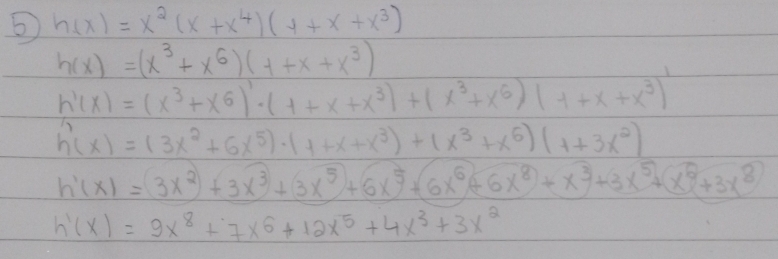 5) h(x) = x² (x + x⁴) (1 + x + x³)
h(x) = (x³ + x⁶) (1 + x + x³)
h'(x) = (x³ + x⁶)' · (1 + x + x³) + (x³ + x⁶) (1 + x + x³)'
h'(x) = (3x² + 6x⁵) · (1 + x + x³) + (x³ + x⁶) (1 + 3x²)
h'(x) = 3x² + 3x³ + 3x⁵ + 6x⁵ + 6x⁶ + 6x⁸ + x³ + 3x⁵ + x⁶ + 3x⁸
h'(x) = 9x⁸ + 7x⁶ + 12x⁵ + 4x³ + 3x²